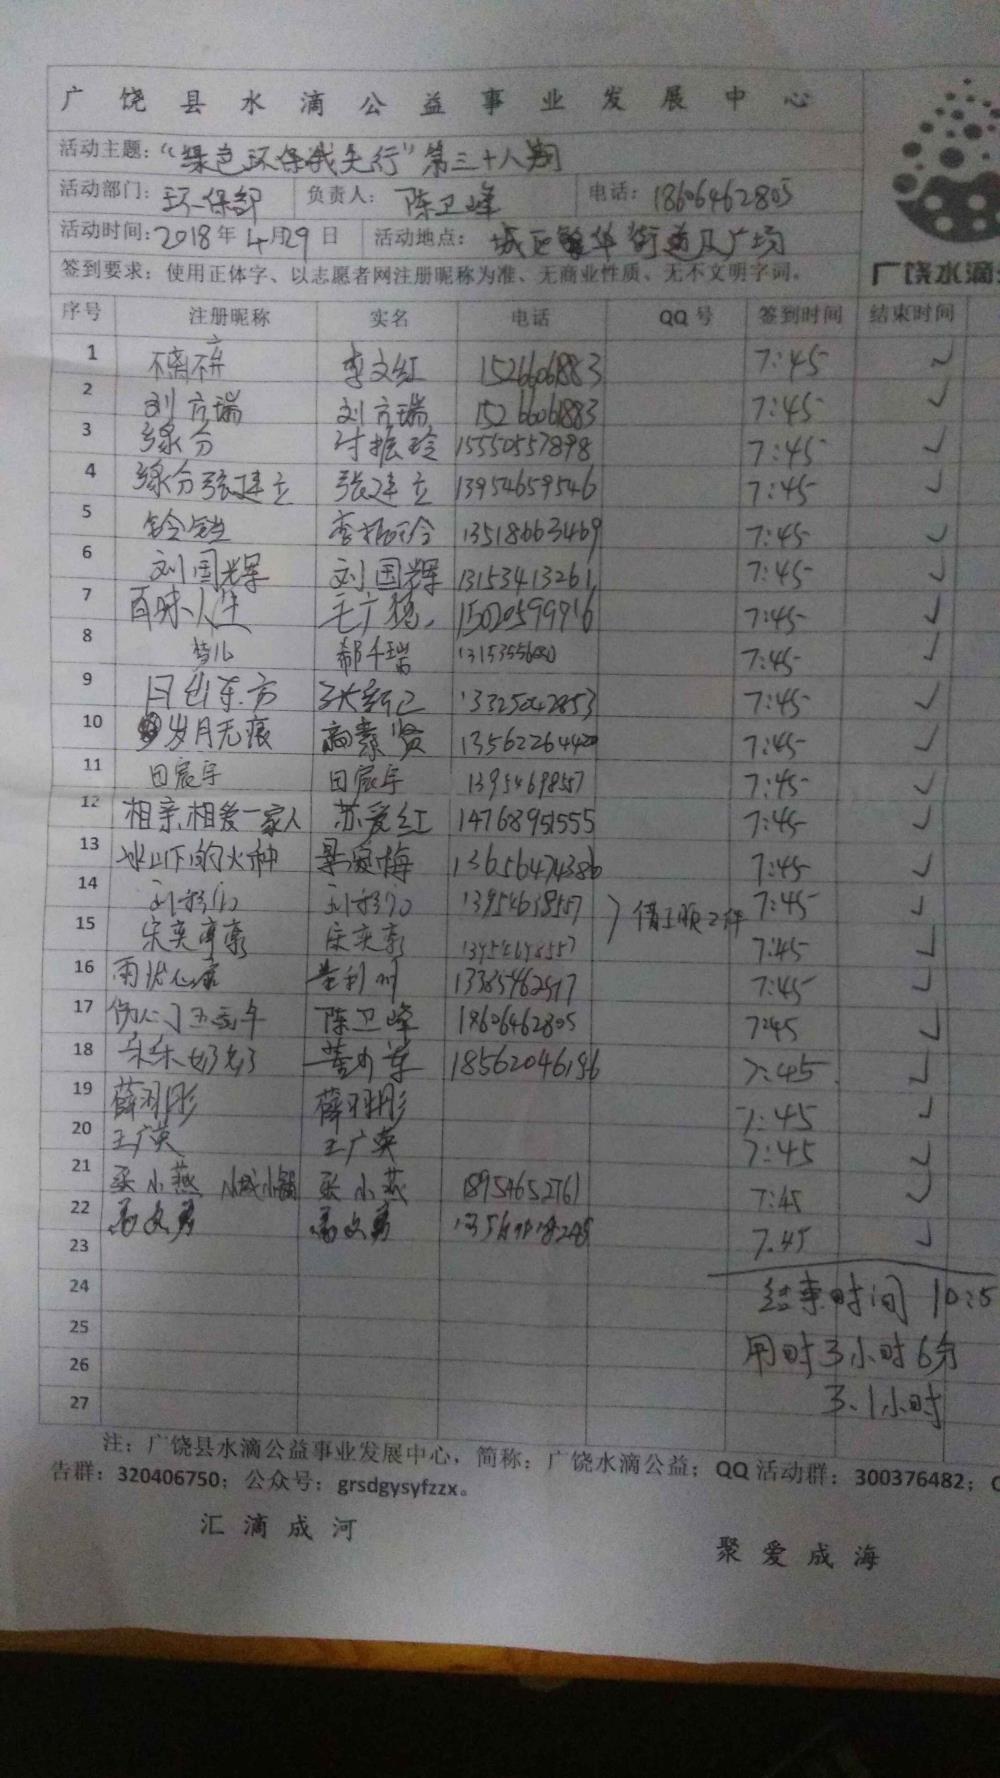 广饶县水滴公益事业发展中心
活动主题：“绿色环保我先行”第三十八期
活动部门：环保部 负责人：陈卫峰 电话：18606462805
活动时间：2018年4月29日 活动地点：城区繁华街道及广场
签到要求：使用正体字、以志愿者网注册昵称为准、无商业性质、无不文明字词。
广饶水滴
序号 注册昵称 实名 电话 QQ号 签到时间 结束时间
1 不离不弃 李文红 15266061883 7:45
2 刘方瑞 刘方瑞 15266061883 7:45
3 缘分 付振玲 15550557898 7:45
4 缘分张建立 张建立 13954659546 7:45
5 13518663469 7:45
6 刘国辉 刘国辉 13153413261 7:45
7 百味人生 15020599916 7:45
8 梦儿 郗千瑞 7:45
9 日出东方 13325042853 7:45
10 岁月无痕 高素贤 13562264420 7:45
11 田宸宇 田宸宇 13954698557 7:45
12 相亲相爱一家人 苏爱红 14768951555 7:45
13 冰山下的火种 13656474386 7:45
14 7:45
15 宋奕亭 宋奕 7:45
16 7:45
17 陈卫峰 18606462805 7:45
18 18562046196 7:45
19 薛羽彤 薛羽彤 7:45
20 王广英 王广英 7:45
21 张小燕 张小燕 18954652761 7:45
22 7.45
23
24 结束时间 10:5
25
26 用时3小时6分
27 3.1小时
注：广饶县水滴公益事业发展中心，简称：广饶水滴公益；QQ活动群：300376482；
告群：320406750；公众号：grsdgysyfzzx。
汇滴成河
聚爱成海